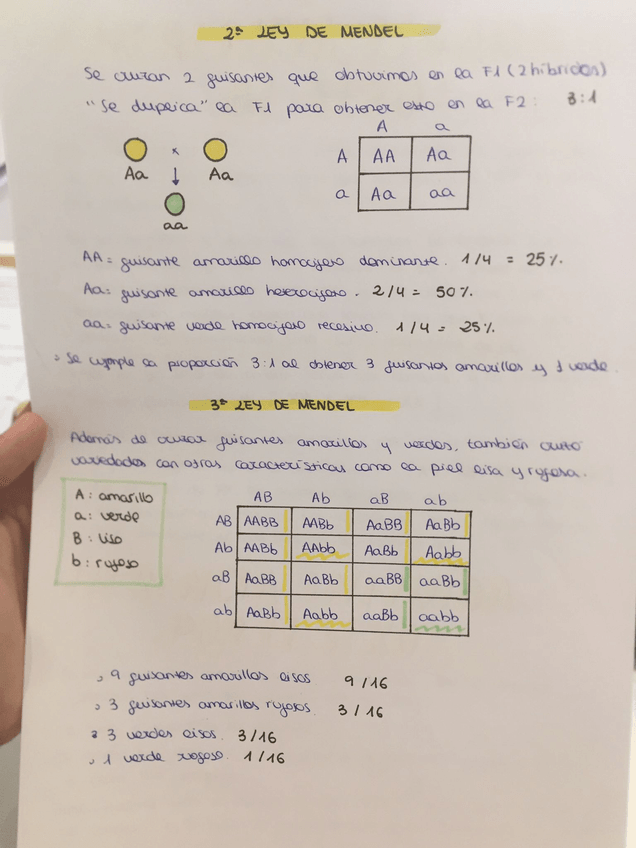 2ª LEY DE MENDEL
Se cruzan 2 guisantes que obtuvimos en la F1 (2 híbridos)
"Se duplica" la F1 para obtener esto en la F2: 3:1
A a
Aa x Aa
A AA Aa
a Aa aa
aa
AA = guisante amarillo homocigoto dominante. 1/4 = 25%.
Aa = guisante amarillo heterocigoto. 2/4 = 50%.
aa = guisante verde homocigoto recesivo. 1/4 = 25%
Se cumple la proporción 3:1 al obtener 3 guisantes amarillos y 1 verde.
3ª LEY DE MENDEL
Además de cruzar guisantes amarillos y verdes, también cruzó
variedades con otras características como la piel lisa y rugosa.
A: amarillo
a: verde
B: liso
b: rugoso
AB Ab aB ab
AB AABB AABb AaBB AaBb
Ab AABb AAbb AaBb Aabb
aB AaBB AaBb aaBB aaBb
ab AaBb Aabb aaBb aabb
9 guisantes amarillos lisos 9/16
3 guisantes amarillos rugosos. 3/16
3 verdes lisos. 3/16
1 verde rugoso. 1/16